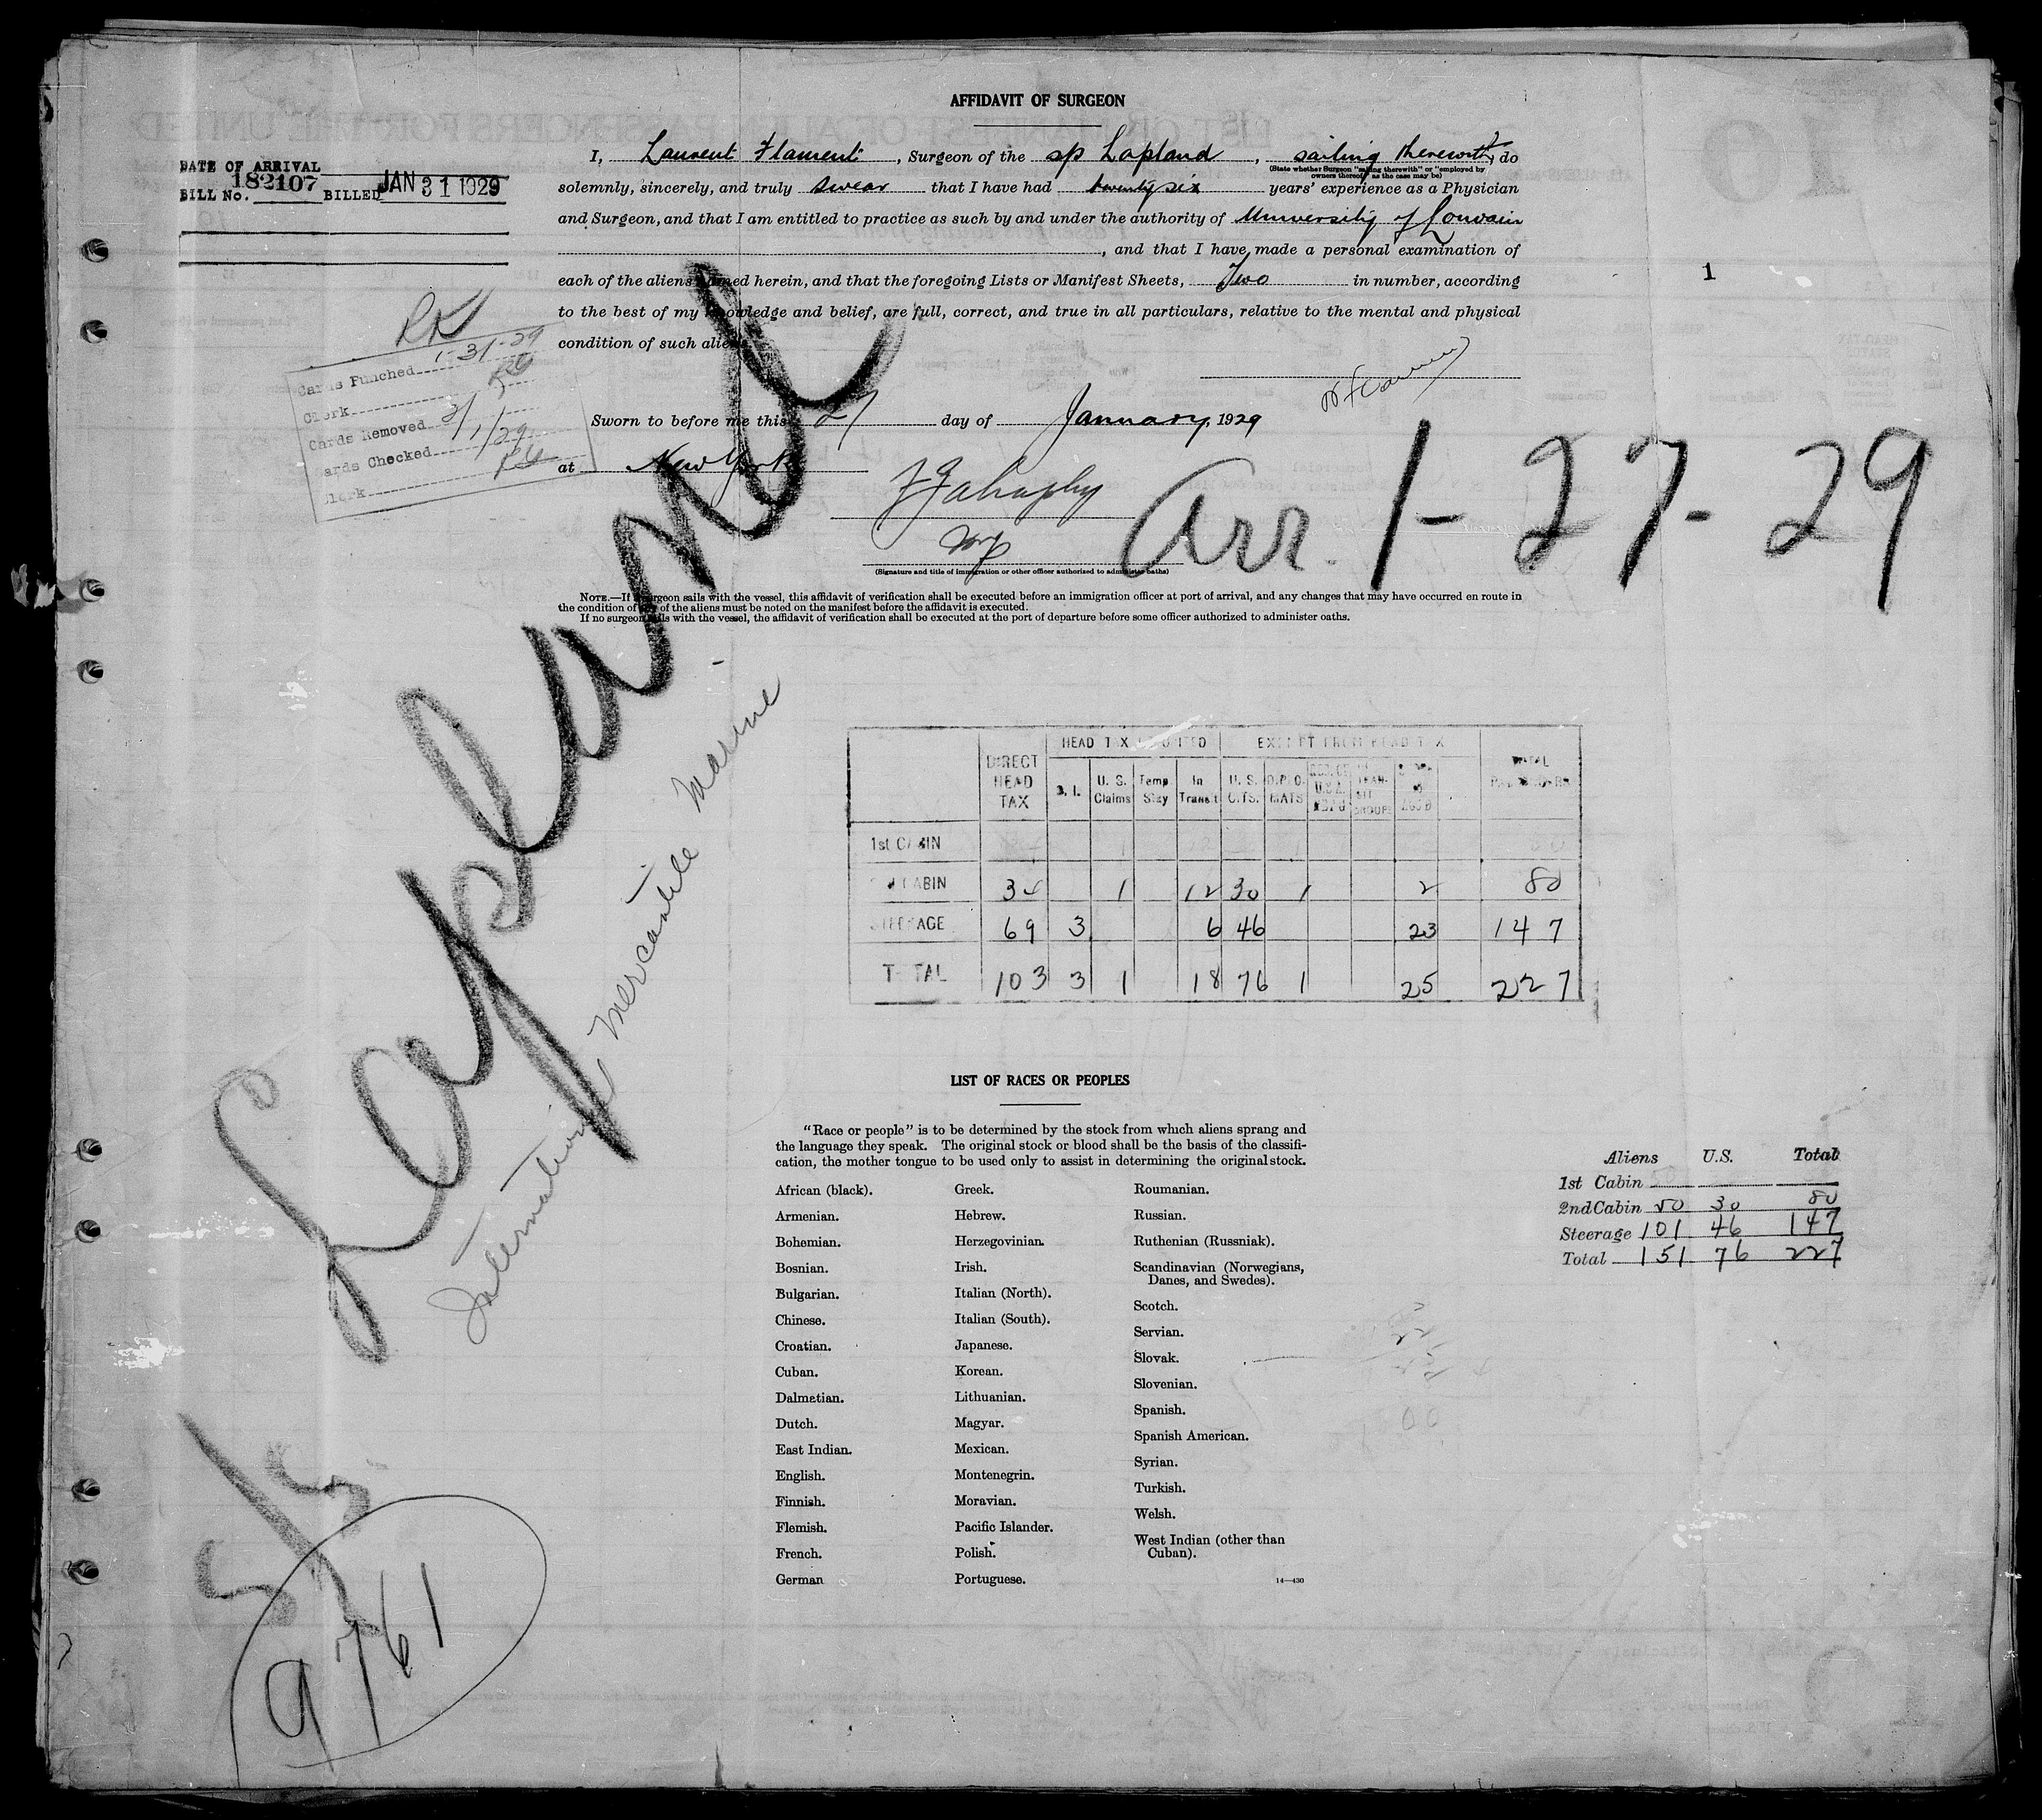 AFFIDAVIT OF SURGEON
DATE OF ARRIVAL
BILL No. 182107 BILLED JAN 31 1929
I, Laurent Flament, Surgeon of the sp Lapland, sailing therewith, do
(State whether Surgeon "sailing therewith" or "employed by
owners thereof," as the case may be)
solemnly, sincerely, and truly swear that I have had twenty six years' experience as a Physician
and Surgeon, and that I am entitled to practice as such by and under the authority of University of Louvain
, and that I have made a personal examination of
each of the aliens named herein, and that the foregoing Lists or Manifest Sheets, Two in number, according
to the best of my knowledge and belief, are full, correct, and true in all particulars, relative to the mental and physical
condition of such aliens.
1
RK
Cards Punched 1-31-29
Clerk
Cards Removed 3/1/29
Cards Checked
Clerk
Sworn to before me this 27 day of January, 1929
at New York
Arr. 1-27-29
(Signature and title of immigration or other officer authorized to administer oaths)
NOTE.—If surgeon sails with the vessel, this affidavit of verification shall be executed before an immigration officer at port of arrival, and any changes that may have occurred en route in
the condition of any of the aliens must be noted on the manifest before the affidavit is executed.
If no surgeon sails with the vessel, the affidavit of verification shall be executed at the port of departure before some officer authorized to administer oaths.
Lapland
International Mercantile Marine
HEAD TAX EXEMPT FROM HEAD TAX
DIRECT HEAD TAX S. I. U. S. Claims Temp. Stay In Transit U. S. CITS. DIPLOMATS TOTAL
1st CABIN
2nd CABIN 34 1 12 30 1 2 80
STEERAGE 69 3 6 46 23 147
TOTAL 103 3 1 18 76 1 25 227
LIST OF RACES OR PEOPLES
"Race or people" is to be determined by the stock from which aliens sprang and
the language they speak. The original stock or blood shall be the basis of the classifi-
cation, the mother tongue to be used only to assist in determining the original stock.
African (black).
Armenian.
Bohemian.
Bosnian.
Bulgarian.
Chinese.
Croatian.
Cuban.
Dalmatian.
Dutch.
East Indian.
English.
Finnish.
Flemish.
French.
German
Greek.
Hebrew.
Herzegovinian.
Irish.
Italian (North).
Italian (South).
Japanese.
Korean.
Lithuanian.
Magyar.
Mexican.
Montenegrin.
Moravian.
Pacific Islander.
Polish.
Portuguese.
Roumanian.
Russian.
Ruthenian (Russniak).
Scandinavian (Norwegians,
Danes, and Swedes).
Scotch.
Servian.
Slovak.
Slovenian.
Spanish.
Spanish American.
Syrian.
Turkish.
Welsh.
West Indian (other than
Cuban).
14—430
Aliens U.S. Total
1st Cabin
2nd Cabin 50 30 80
Steerage 101 46 147
Total 151 76 227
S/S
9761